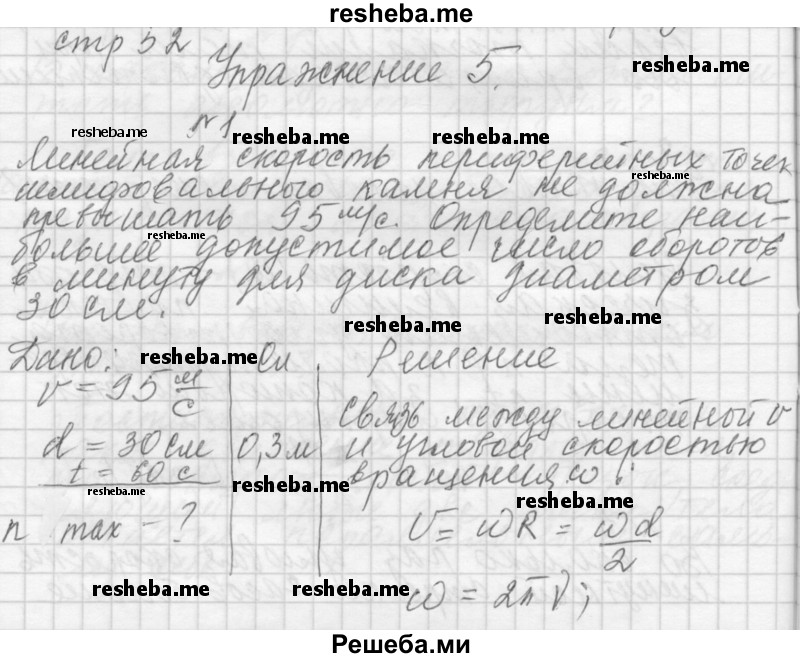 resheba.me
стр 52
Упражнение 5.
resheba.me
№1
resheba.me resheba.me resheba.me
Линейная скорость периферийных точек
resheba.me
шлифовального камня не должна
превышать 95 м/с. Определите наи-
resheba.me
большее допустимое число оборотов
в минуту для диска диаметром
30 см.
resheba.me resheba.me
Дано: Си Решение
resheba.me
v = 95 м/с
Связь между линейной v
d = 30 см 0,3 м и угловой скоростью
t = 60 с вращения ω:
resheba.me resheba.me resheba.me
n max - ? V = ωR = ωd/2
resheba.me resheba.me
ω = 2πν;
Решеба.ми